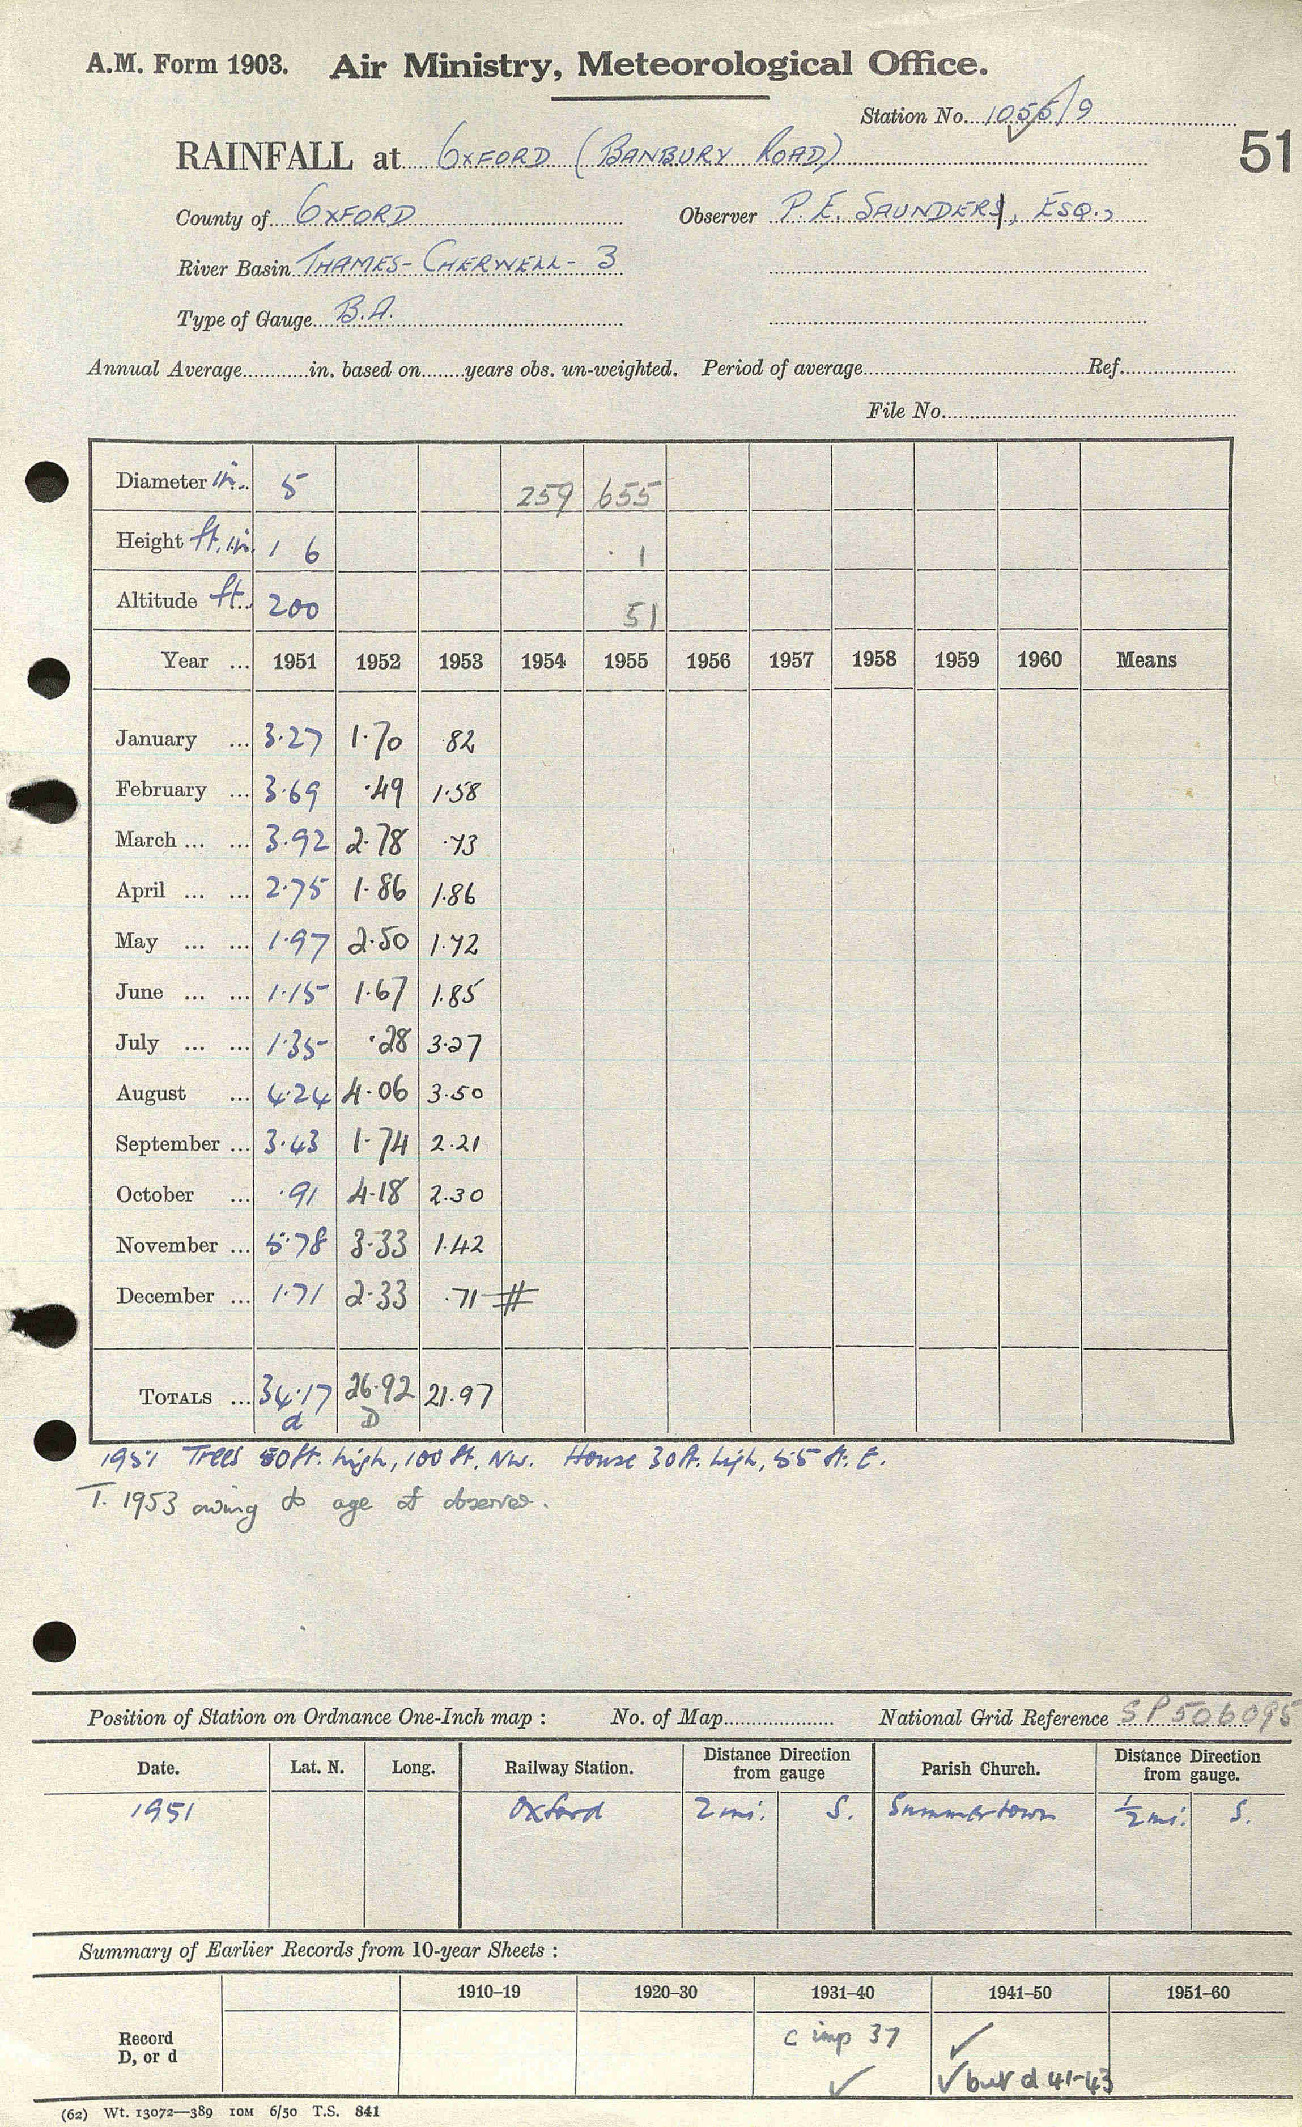 A.M. Form 1903. Air Ministry, Meteorological Office.
Station No. 1055/9
51
RAINFALL at OXFORD (BANBURY ROAD)
County of OXFORD Observer P.E. SAUNDERS, ESQ.,
River Basin THAMES-CHERWELL-3
Type of Gauge B.A.
Annual Average in. based on years obs. un-weighted. Period of average Ref.
File No.
Diameter in. 5 259 655
Height ft. in. 1 6 1
Altitude ft. 200 51
Year ... 1951 1952 1953 1954 1955 1956 1957 1958 1959 1960 Means
January ... 3.27 1.70 .82
February ... 3.69 .49 1.58
March ... ... 3.92 2.78 .73
April ... ... 2.75 1.86 1.86
May ... ... 1.97 2.50 1.72
June ... ... 1.15 1.67 1.85
July ... ... 1.35 .28 3.27
August ... 4.24 4.06 3.50
September ... 3.43 1.74 2.21
October ... .91 4.18 2.30
November ... 5.78 3.33 1.42
December ... 1.71 2.33 .71 #
TOTALS ... 34.17 26.92 21.97
d D
1951 Trees 50ft. high, 100 ft. NW. House 30ft. high, 55 ft. E.
T. 1953 owing to age of observer.
Position of Station on Ordnance One-Inch map : No. of Map National Grid Reference SP506095
Date. Lat. N. Long. Railway Station. Distance from gauge Direction Parish Church. Distance from gauge. Direction
1951 Oxford 2 mi. S. Summertown ½ mi. S.
Summary of Earlier Records from 10-year Sheets :
1910-19 1920-30 1931-40 1941-50 1951-60
Record D, or d c imp 37 ✓
✓ ✓ but d 41-43
(62) Wt. 13072—389 10M 6/50 T.S. 841